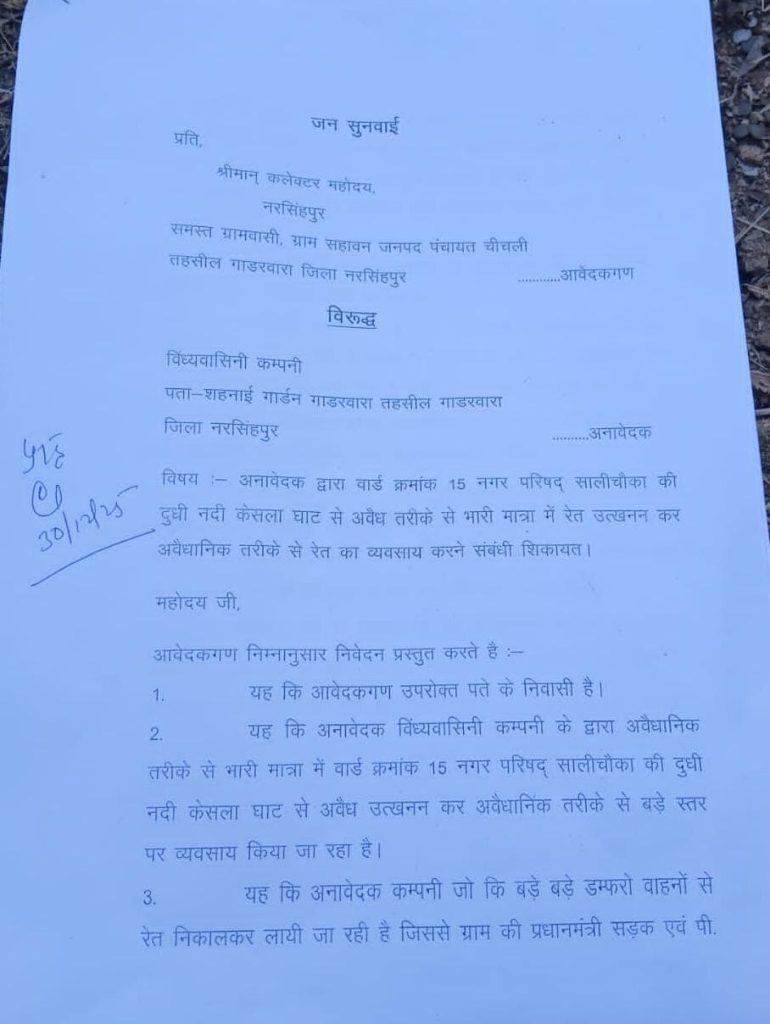 जन सुनवाई
प्रति,
श्रीमान् कलेक्टर महोदय,
नरसिंहपुर
समस्त ग्रामवासी, ग्राम सहावन जनपद पंचायत चीचली
तहसील गाडरवारा जिला नरसिंहपुर ............आवेदकगण
विरूद्ध
विंध्यवासिनी कम्पनी
पता–शहनाई गार्डन गाडरवारा तहसील गाडरवारा
जिला नरसिंहपुर ..........अनावेदक
विषय :– अनावेदक द्वारा वार्ड क्रमांक 15 नगर परिषद् सालीचौका की
दुधी नदी केसला घाट से अवैध तरीके से भारी मात्रा में रेत उत्खनन कर
अवैधानिक तरीके से रेत का व्यवसाय करने संबंधी शिकायत।
30/12/25
महोदय जी,
आवेदकगण निम्नानुसार निवेदन प्रस्तुत करते है :–
1. यह कि आवेदकगण उपरोक्त पते के निवासी है।
2. यह कि अनावेदक विंध्यवासिनी कम्पनी के द्वारा अवैधानिक
तरीके से भारी मात्रा में वार्ड क्रमांक 15 नगर परिषद् सालीचौका की दुधी
नदी केसला घाट से अवैध उत्खनन कर अवैधानिक तरीके से बड़े स्तर
पर व्यवसाय किया जा रहा है।
3. यह कि अनावेदक कम्पनी जो कि बड़े बड़े डम्फरो वाहनों से
रेत निकालकर लायी जा रही है जिससे ग्राम की प्रधानमंत्री सड़क एवं पी.